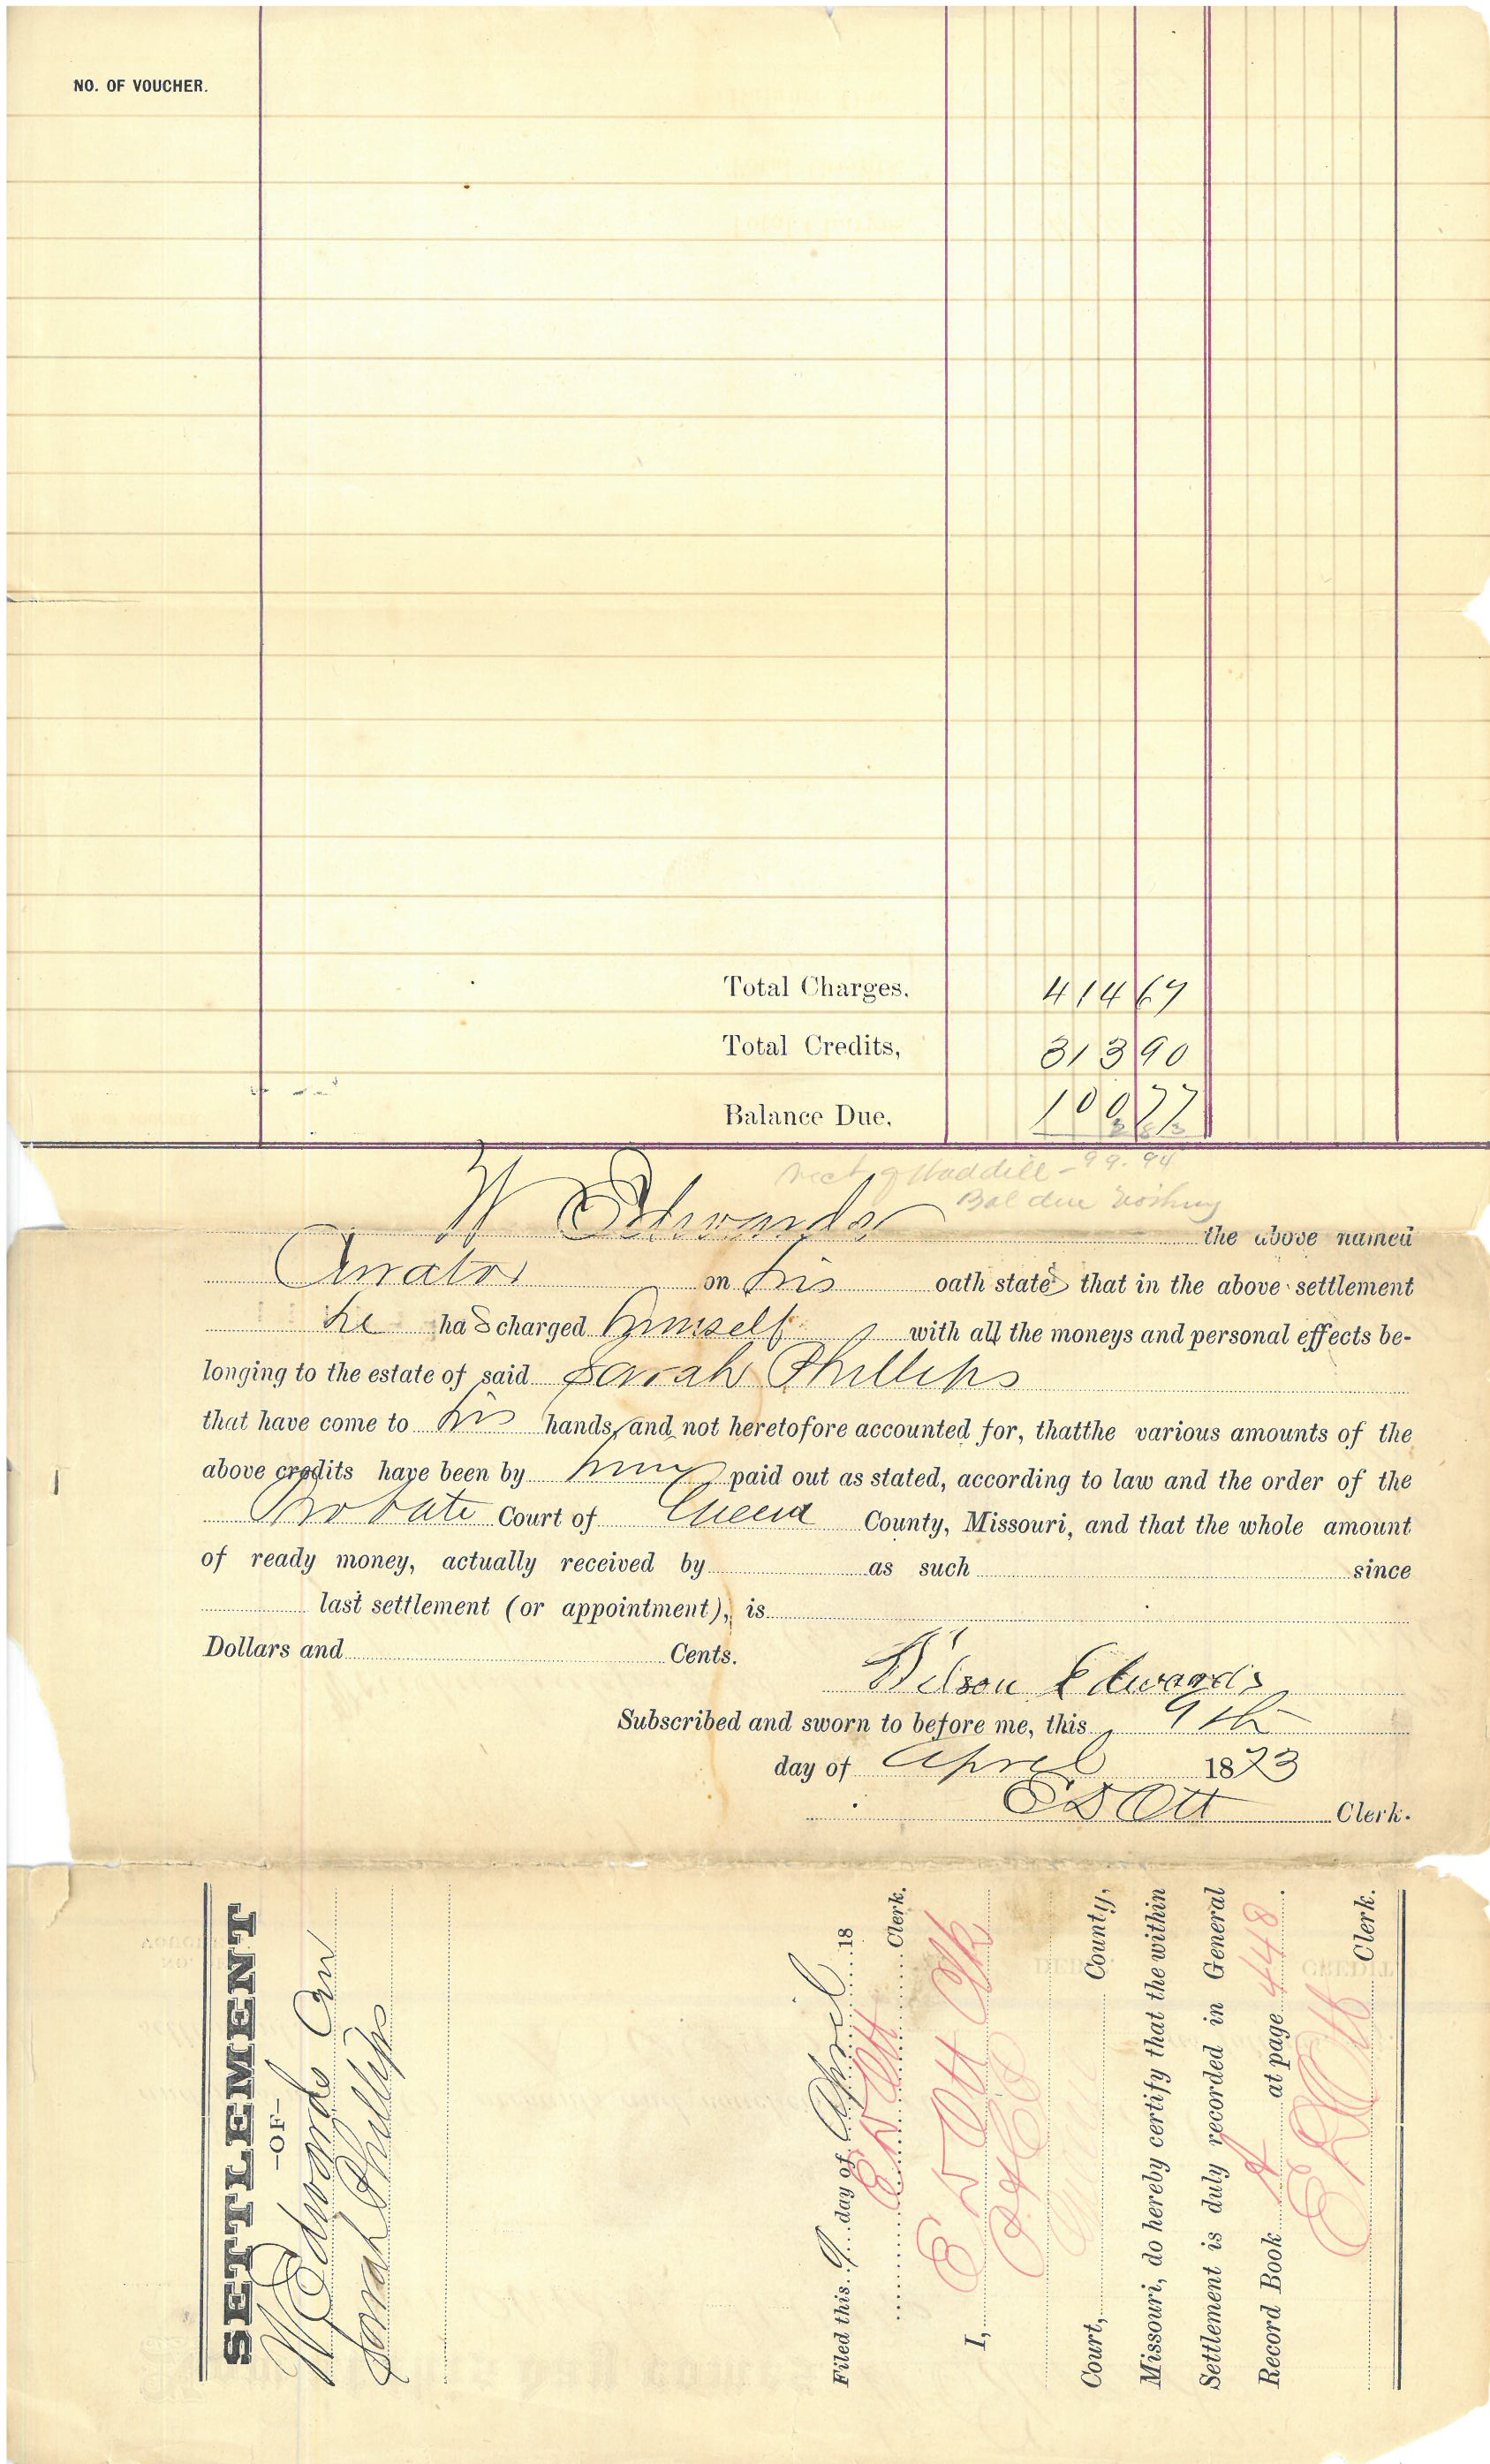 NO. OF VOUCHER.
Total Charges. 414 67
Total Credits, 313 90
Balance Due, 100 77
Waddill - 99.94
Bal due Nothing
W Edwards the above named
on his oath states that in the above settlement
he has charged himself with all the moneys and personal effects be-
longing to the estate of said Sarah Phillips
that have come to his hands, and not heretofore accounted for, thatthe various amounts of the
above credits have been by him paid out as stated, according to law and the order of the
Probate Court of Greene County, Missouri, and that the whole amount
of ready money, actually received by as such since
last settlement (or appointment), is
Dollars and Cents.
Wilson Edwards
Subscribed and sworn to before me, this 9th
day of April 1873
E D Ott Clerk.
SETTLEMENT
-OF-
W Edwards
Sarah Phillips
Filed this 9 day of April 18
E D Ott Clerk.
I, E D Ott Clk
Court, County,
Missouri, do hereby certify that the within
Settlement is duly recorded in General
Record Book A at page 448.
E D Ott Clerk.